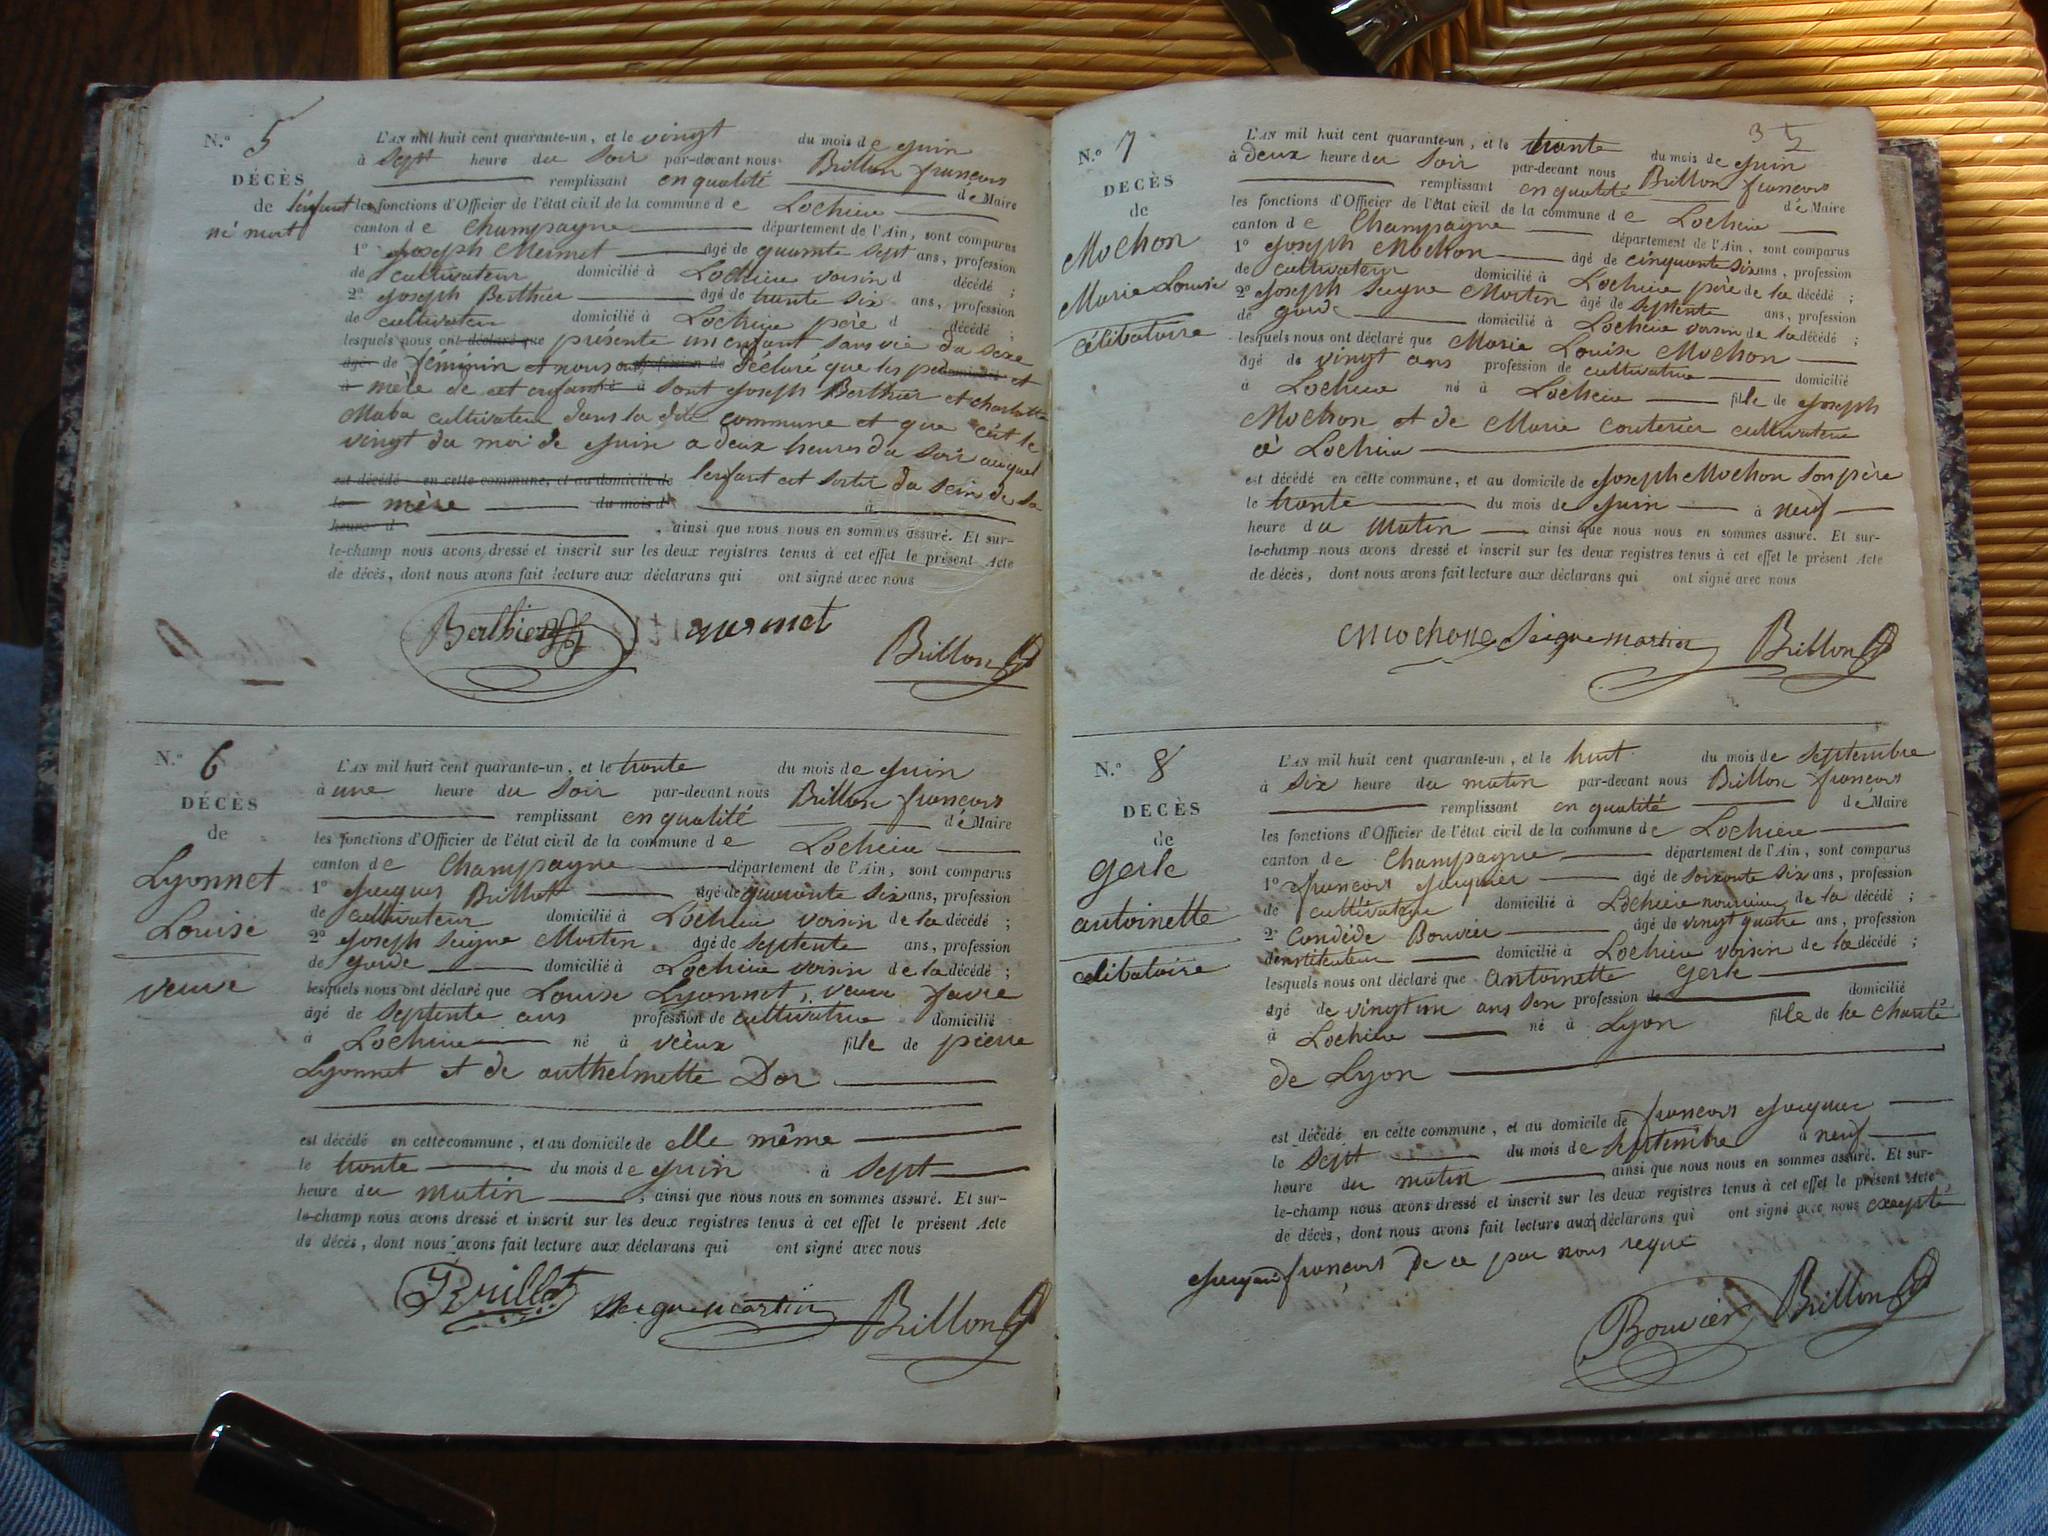 N.° 5
DÉCÈS
de l'enfant
né mort
L'AN mil huit cent quarante-un, et le vingt du mois de juin
à sept heure du soir par-devant nous Brillon françois
remplissant en qualité de Maire
les fonctions d'Officier de l'état civil de la commune de Lochieu
canton de Champagne département de l'Ain, sont comparus
1° Joseph Mermet âgé de quarante sept ans, profession
de cultivateur domicilié à Lochieu voisin d décédé ;
2° Joseph Berthier âgé de trente six ans, profession
de cultivateur domicilié à Lochieu père d décédé ;
lesquels nous ont déclaré que présenté un enfant sans vie du sexe
âgé de féminin et nous ont profession de déclaré que les père domicilié et
à mère de cet enfant né à sont Joseph Berthier et charlotte
Maba cultivateur dans la dite commune et que c'est le
vingt du moi de juin a deux heures du soir auquel
est décédé en cette commune, et au domicile de l'enfant est sortir du sein de sa
le mère du mois d à
heure d , ainsi que nous nous en sommes assuré. Et sur-
le-champ nous avons dressé et inscrit sur les deux registres tenus à cet effet le présent Acte
de décès, dont nous avons fait lecture aux déclarans qui ont signé avec nous
Berthier mermet Brillon
N.° 6
DÉCÈS
de
Lyonnet
Louise
veuve
L'AN mil huit cent quarante-un, et le trente du mois de juin
à une heure du soir par-devant nous Brillon françois
remplissant en qualité de Maire
les fonctions d'Officier de l'état civil de la commune de Lochieu
canton de Champagne département de l'Ain, sont comparus
1° Jacques Brillat âgé de quarante six ans, profession
de cultivateur domicilié à Lochieu voisin de la décédé ;
2° Joseph Seigne Martin âgé de septente ans, profession
de garde domicilié à Lochieu voisin de la décédé ;
lesquels nous ont déclaré que Louise Lyonnet, veuve favre
âgé de septente ans profession de cultivatrice domicilié
à Lochieu né à vieux fille de pierre
Lyonnet et de anthelmette Dor
est décédé en cette commune, et au domicile de elle même
le trente du mois de juin à sept
heure du matin , ainsi que nous nous en sommes assuré. Et sur-
le-champ nous avons dressé et inscrit sur les deux registres tenus à cet effet le présent Acte
de décès, dont nous avons fait lecture aux déclarans qui ont signé avec nous
Brillat Seigne martin Brillon
3 5/2
N.° 7
DÉCÈS
de
Mochon
Marie Louise
célibataire
L'AN mil huit cent quarante-un, et le trente du mois de juin
à deux heure du soir par-devant nous Brillon françois
remplissant en qualité de Maire
les fonctions d'Officier de l'état civil de la commune de Lochieu
canton de Champagne département de l'Ain, sont comparus
1° Joseph Mochon âgé de cinquante six ans, profession
de cultivateur domicilié à Lochieu père de la décédé ;
2° Joseph Seigne Martin âgé de septente ans, profession
de garde domicilié à Lochieu voisin de la décédé ;
lesquels nous ont déclaré que Marie Louise Mochon
âgé de vingt ans profession de cultivatrice domicilié
à Lochieu né à Lochieu fille de Joseph
Mochon et de Marie couterier cultivateur
à Lochieu
est décédé en cette commune, et au domicile de Joseph Mochon son père
le trente du mois de juin à neuf
heure du matin ainsi que nous nous en sommes assuré. Et sur-
le-champ nous avons dressé et inscrit sur les deux registres tenus à cet effet le présent Acte
de décès, dont nous avons fait lecture aux déclarans qui ont signé avec nous
Mochon Seigne martin Brillon
N.° 8
DÉCÈS
de
gerle
antoinette
célibataire
L'AN mil huit cent quarante-un, et le huit du mois de septembre
à six heure du matin par-devant nous Brillon françois
remplissant en qualité de Maire
les fonctions d'Officier de l'état civil de la commune de Lochieu
canton de Champagne département de l'Ain, sont comparus
1° françois juquier âgé de soixante six ans, profession
de cultivateur domicilié à Lochieu nourricier de la décédé ;
2° Condéde Bouvier âgé de vingt quatre ans, profession
d'instituteur domicilié à Lochieu voisin de la décédé ;
lesquels nous ont déclaré que antoinette gerle
âgé de vingt un ans son profession de domicilié
à Lochieu né à Lyon fille de la charité
de Lyon
est décédé en cette commune, et au domicile de françois juquier
le sept du mois de septembre à neuf
heure du matin ainsi que nous nous en sommes assuré. Et sur-
le-champ nous avons dressé et inscrit sur les deux registres tenus à cet effet le présent Acte
de décès, dont nous avons fait lecture aux déclarans qui ont signé avec nous excepté
françois De ce par nous requi
Bouvier Brillon